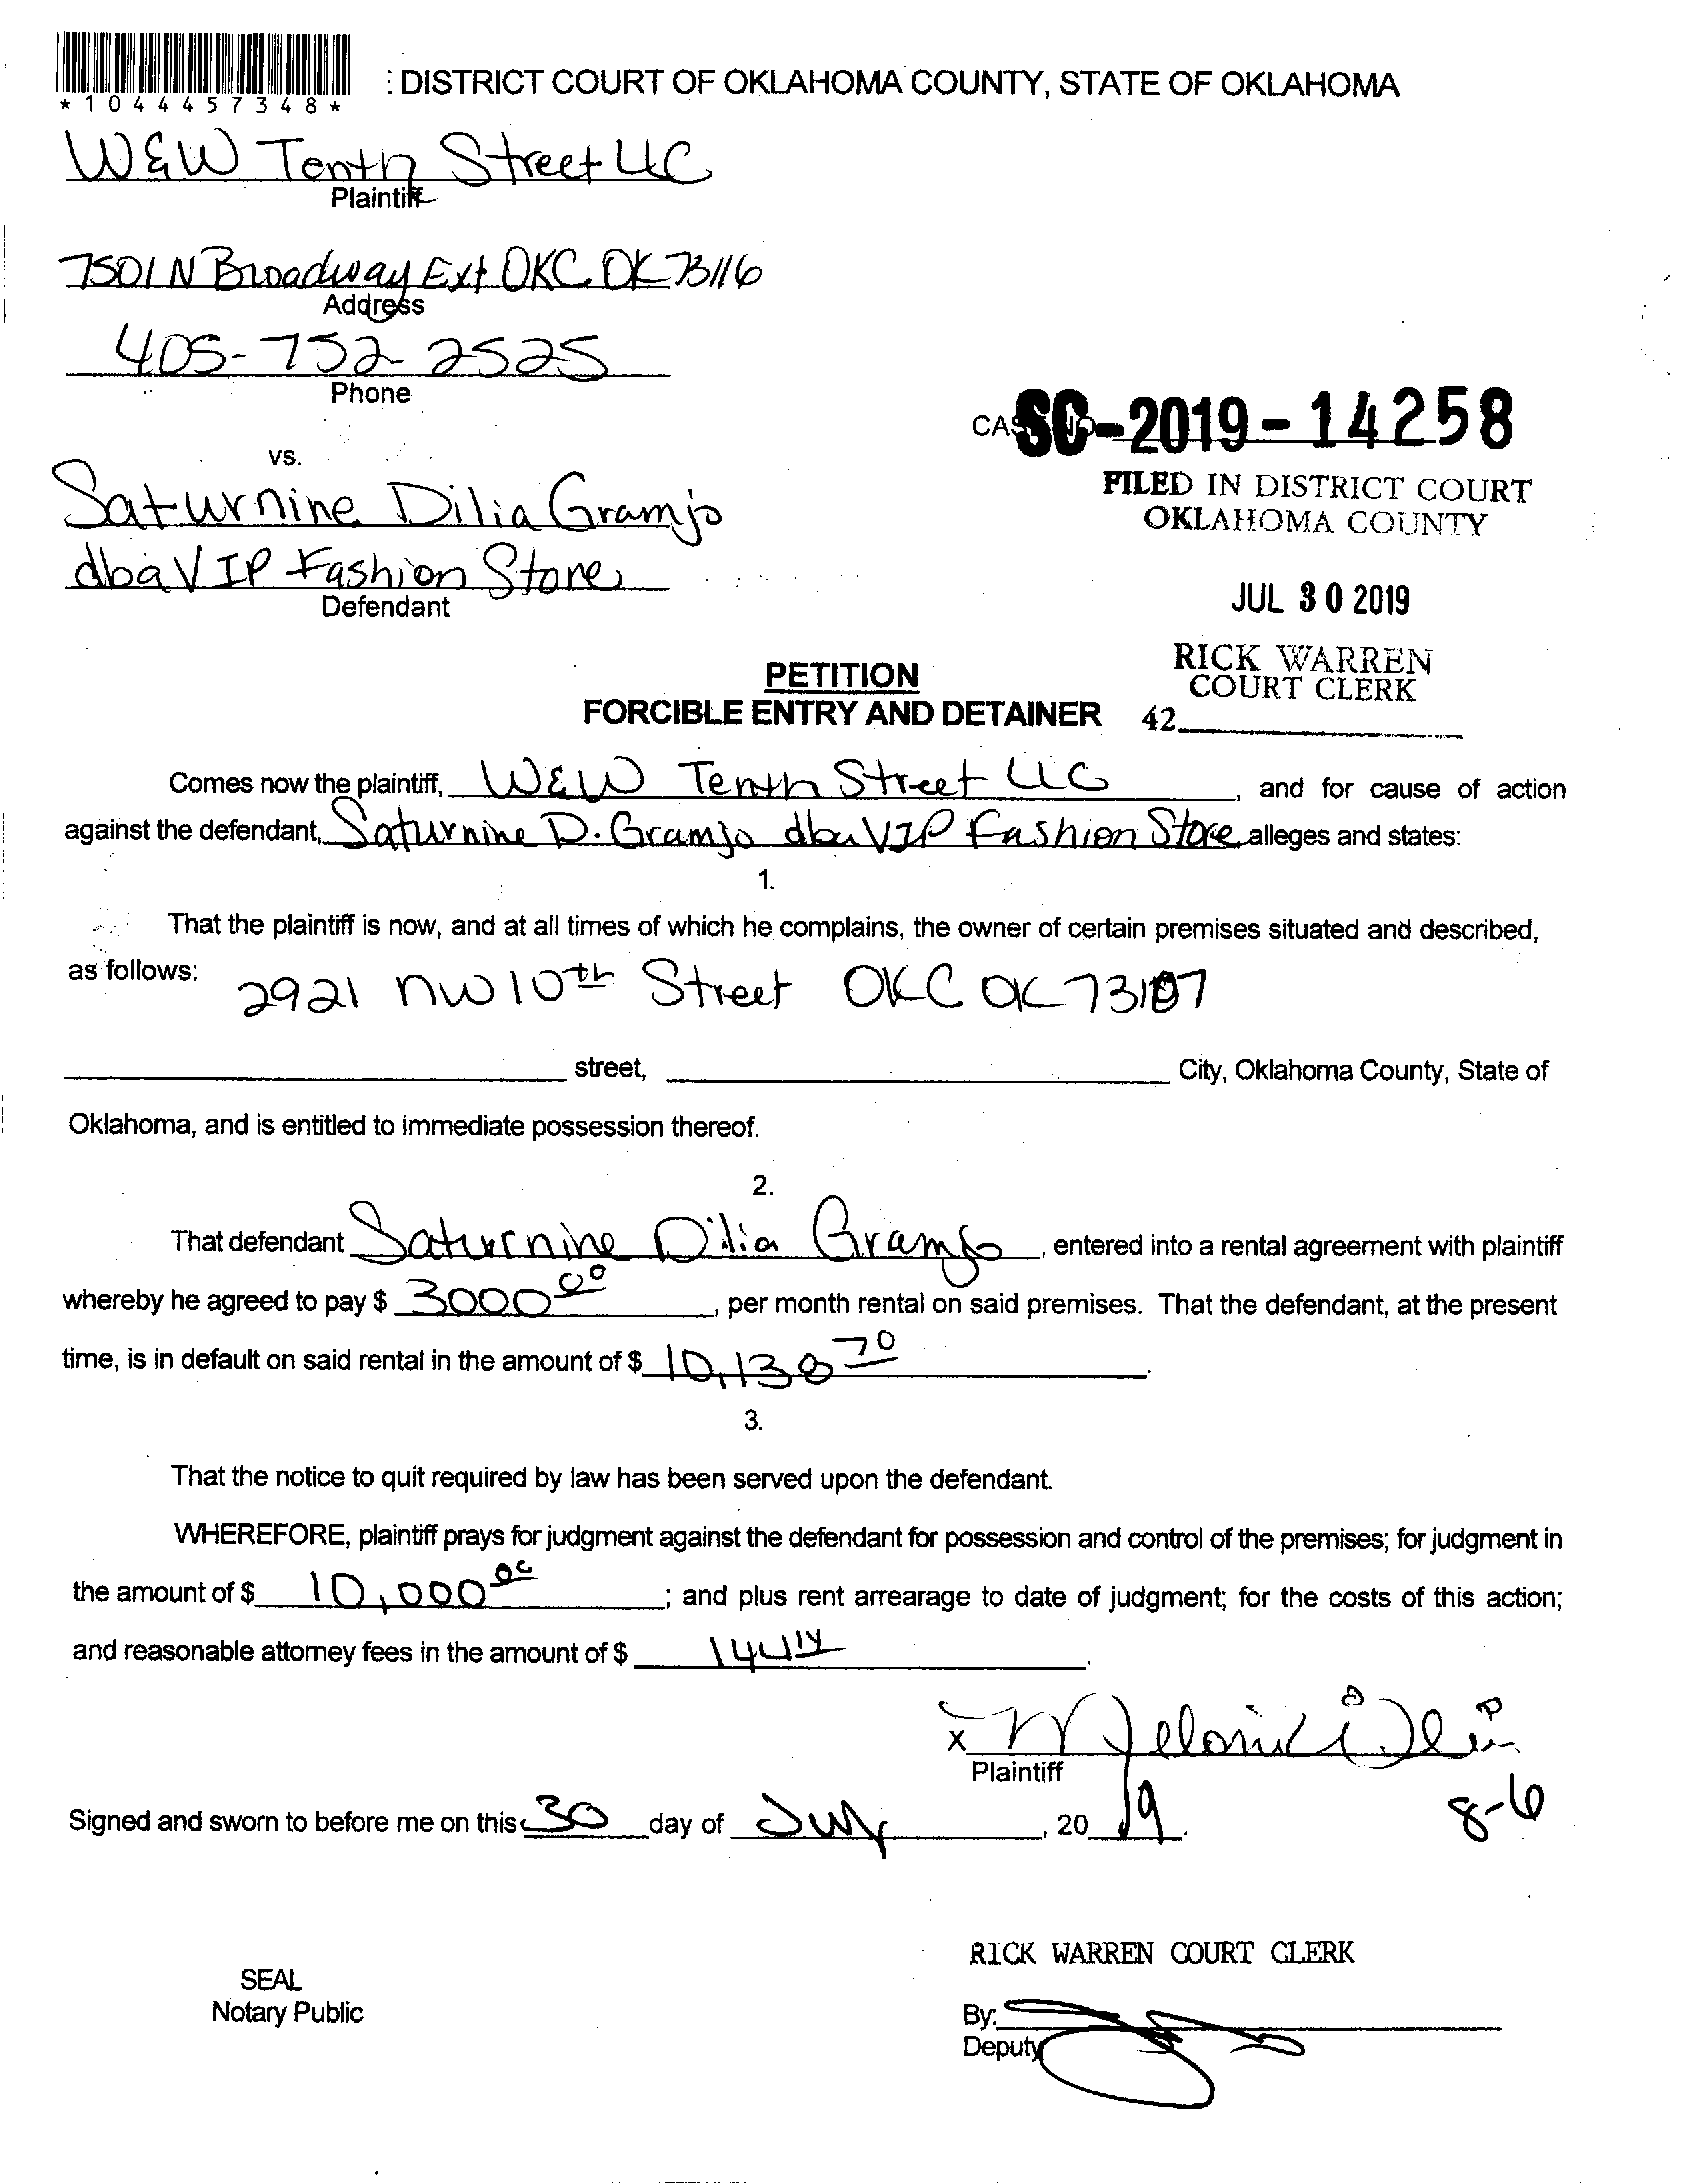 *1044457348*
: DISTRICT COURT OF OKLAHOMA COUNTY, STATE OF OKLAHOMA
W&W Tenth Street LLC
Plaintiff
7501 N Broadway Ext OKC OK 73116
Address
405-752-2525
Phone
SC-2019-14258
vs.
FILED IN DISTRICT COURT
OKLAHOMA COUNTY
Saturnine Dilia Gramjo
dba VIP Fashion Store
Defendant
JUL 30 2019
RICK WARREN
COURT CLERK
42
PETITION
FORCIBLE ENTRY AND DETAINER
Comes now the plaintiff, W&W Tenth Street LLC, and for cause of action
against the defendant, Saturnine D. Gramjo dba VIP Fashion Store alleges and states:
1.
That the plaintiff is now, and at all times of which he complains, the owner of certain premises situated and described,
as follows: 2921 NW 10th Street OKC OK 73107
street, City, Oklahoma County, State of
Oklahoma, and is entitled to immediate possession thereof.
2.
That defendant Saturnine Dilia Gramjo, entered into a rental agreement with plaintiff
whereby he agreed to pay $ 3000 00, per month rental on said premises. That the defendant, at the present
time, is in default on said rental in the amount of $ 10,138 70.
3.
That the notice to quit required by law has been served upon the defendant.
WHEREFORE, plaintiff prays for judgment against the defendant for possession and control of the premises; for judgment in
the amount of $ 10,000 00; and plus rent arrearage to date of judgment; for the costs of this action;
and reasonable attorney fees in the amount of $ 144 14.
x
Plaintiff
Signed and sworn to before me on this 30 day of July, 20 19.
8-6
RICK WARREN COURT CLERK
SEAL
Notary Public
By:
Deputy